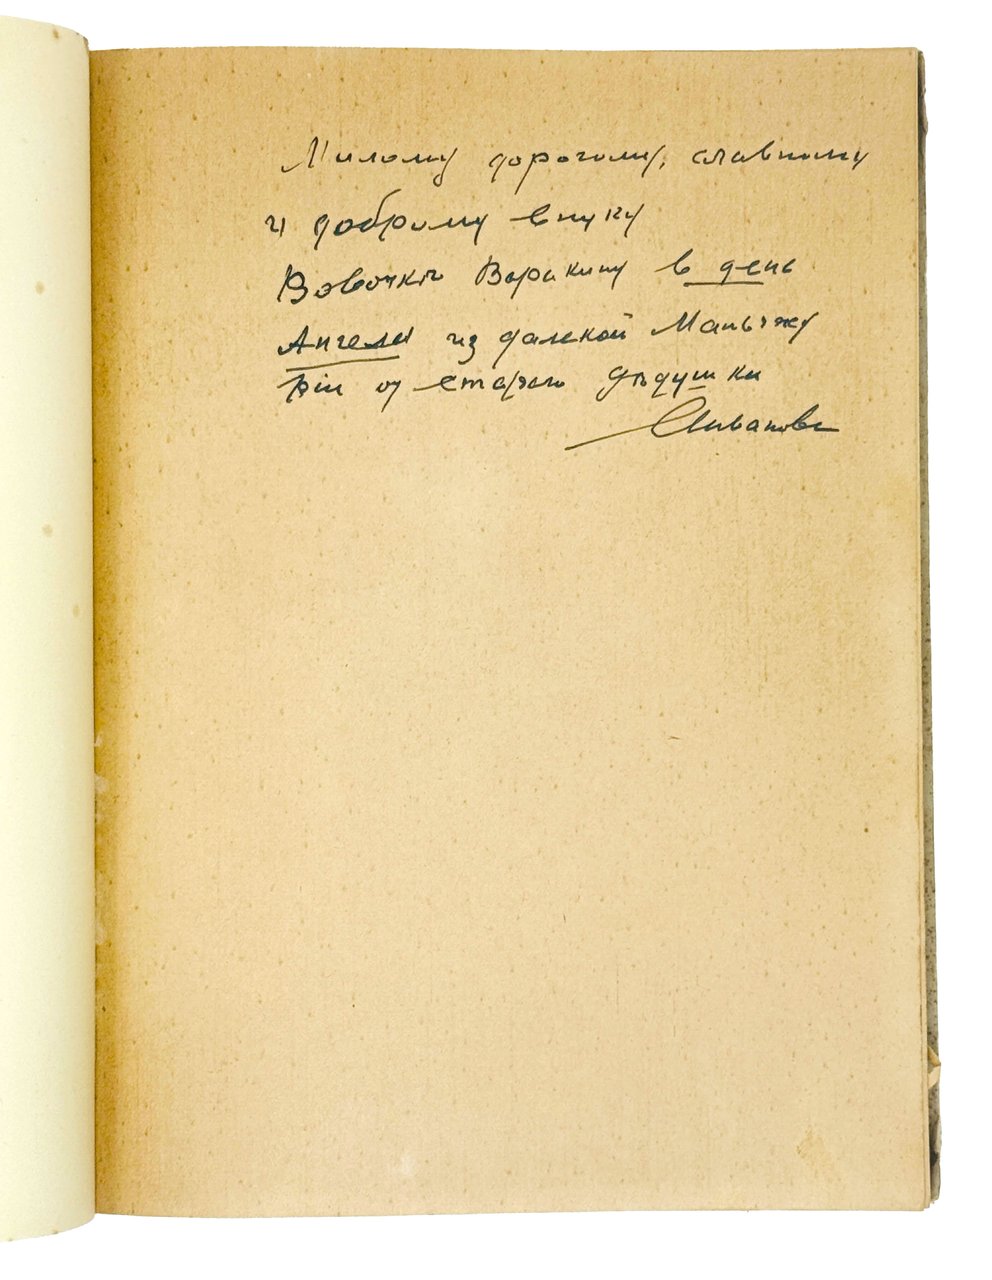 Милому дорогому, славному
и доброму внуку
Вовочкѣ Воракину в день
Ангела из далекой Маньчжу
ріи от стараго дѣдушки